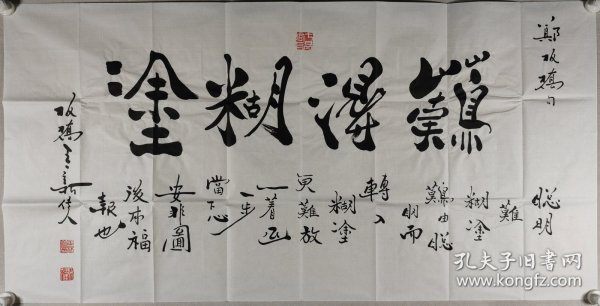 鄭板橋
難得糊塗
聰明
難
糊塗
難由聰
明而
轉入
糊塗
更難放
一著退
一步
當下心
安非圖
後來福
報也
板橋
孔夫子旧书网
www.kongfz.com